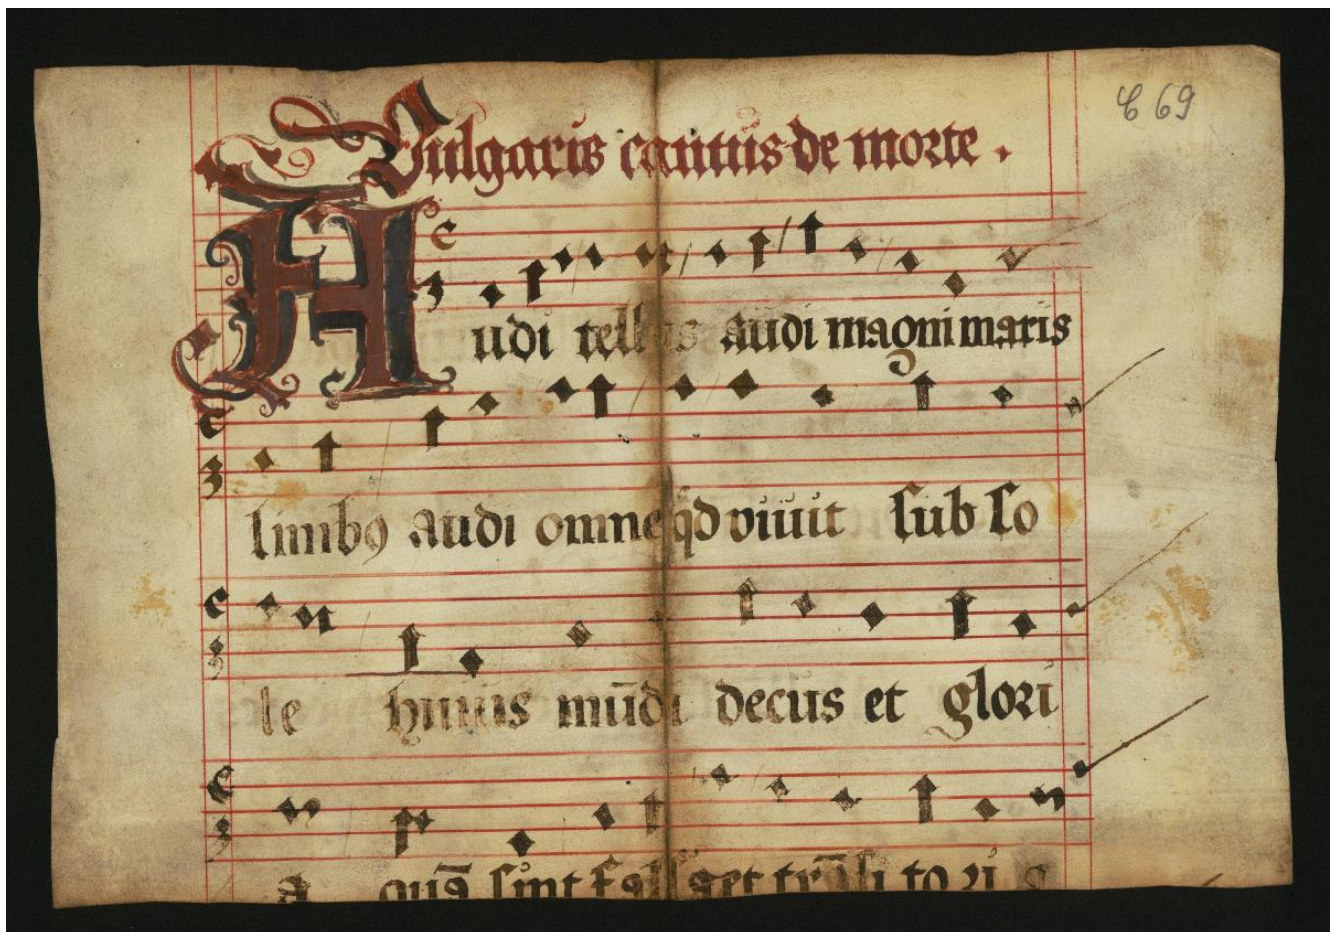 C 69
Vulgaris cantus de morte .
Audi tellus audi magni maris
limbꝯ audi omne qd viuit sub so
le huius mūdi decus et glori
a quā sint